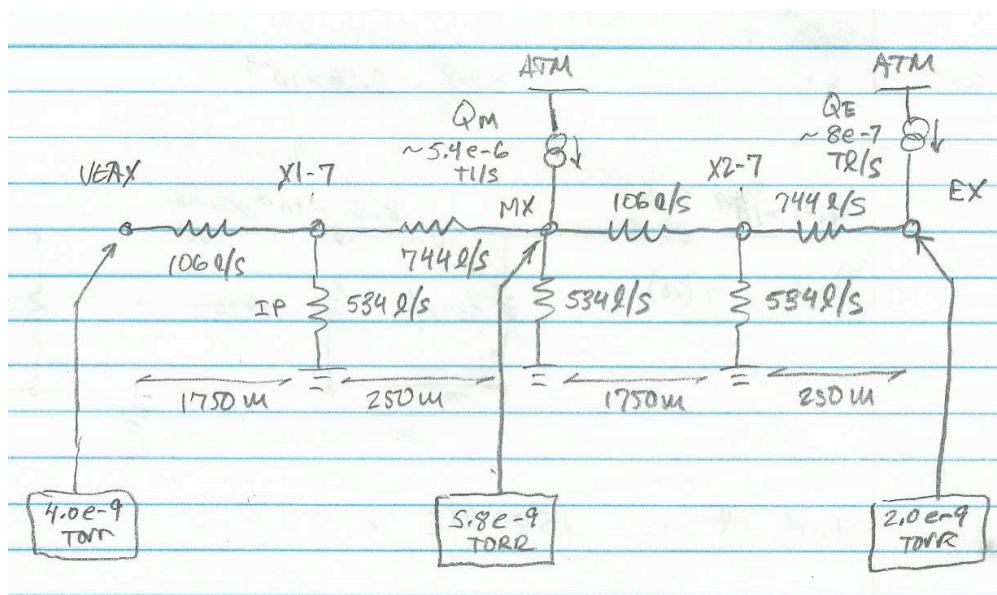 ATM
ATM
QM
~5.4e-6
Tl/s
QE
~8e-7
Tl/s
VEAX
X1-7
MX
106 l/s
X2-7
744 l/s
EX
106 l/s
744 l/s
IP
534 l/s
534 l/s
534 l/s
1750 m
250 m
1750 m
250 m
4.0e-9
Torr
5.8e-9
TORR
2.0e-9
TORR